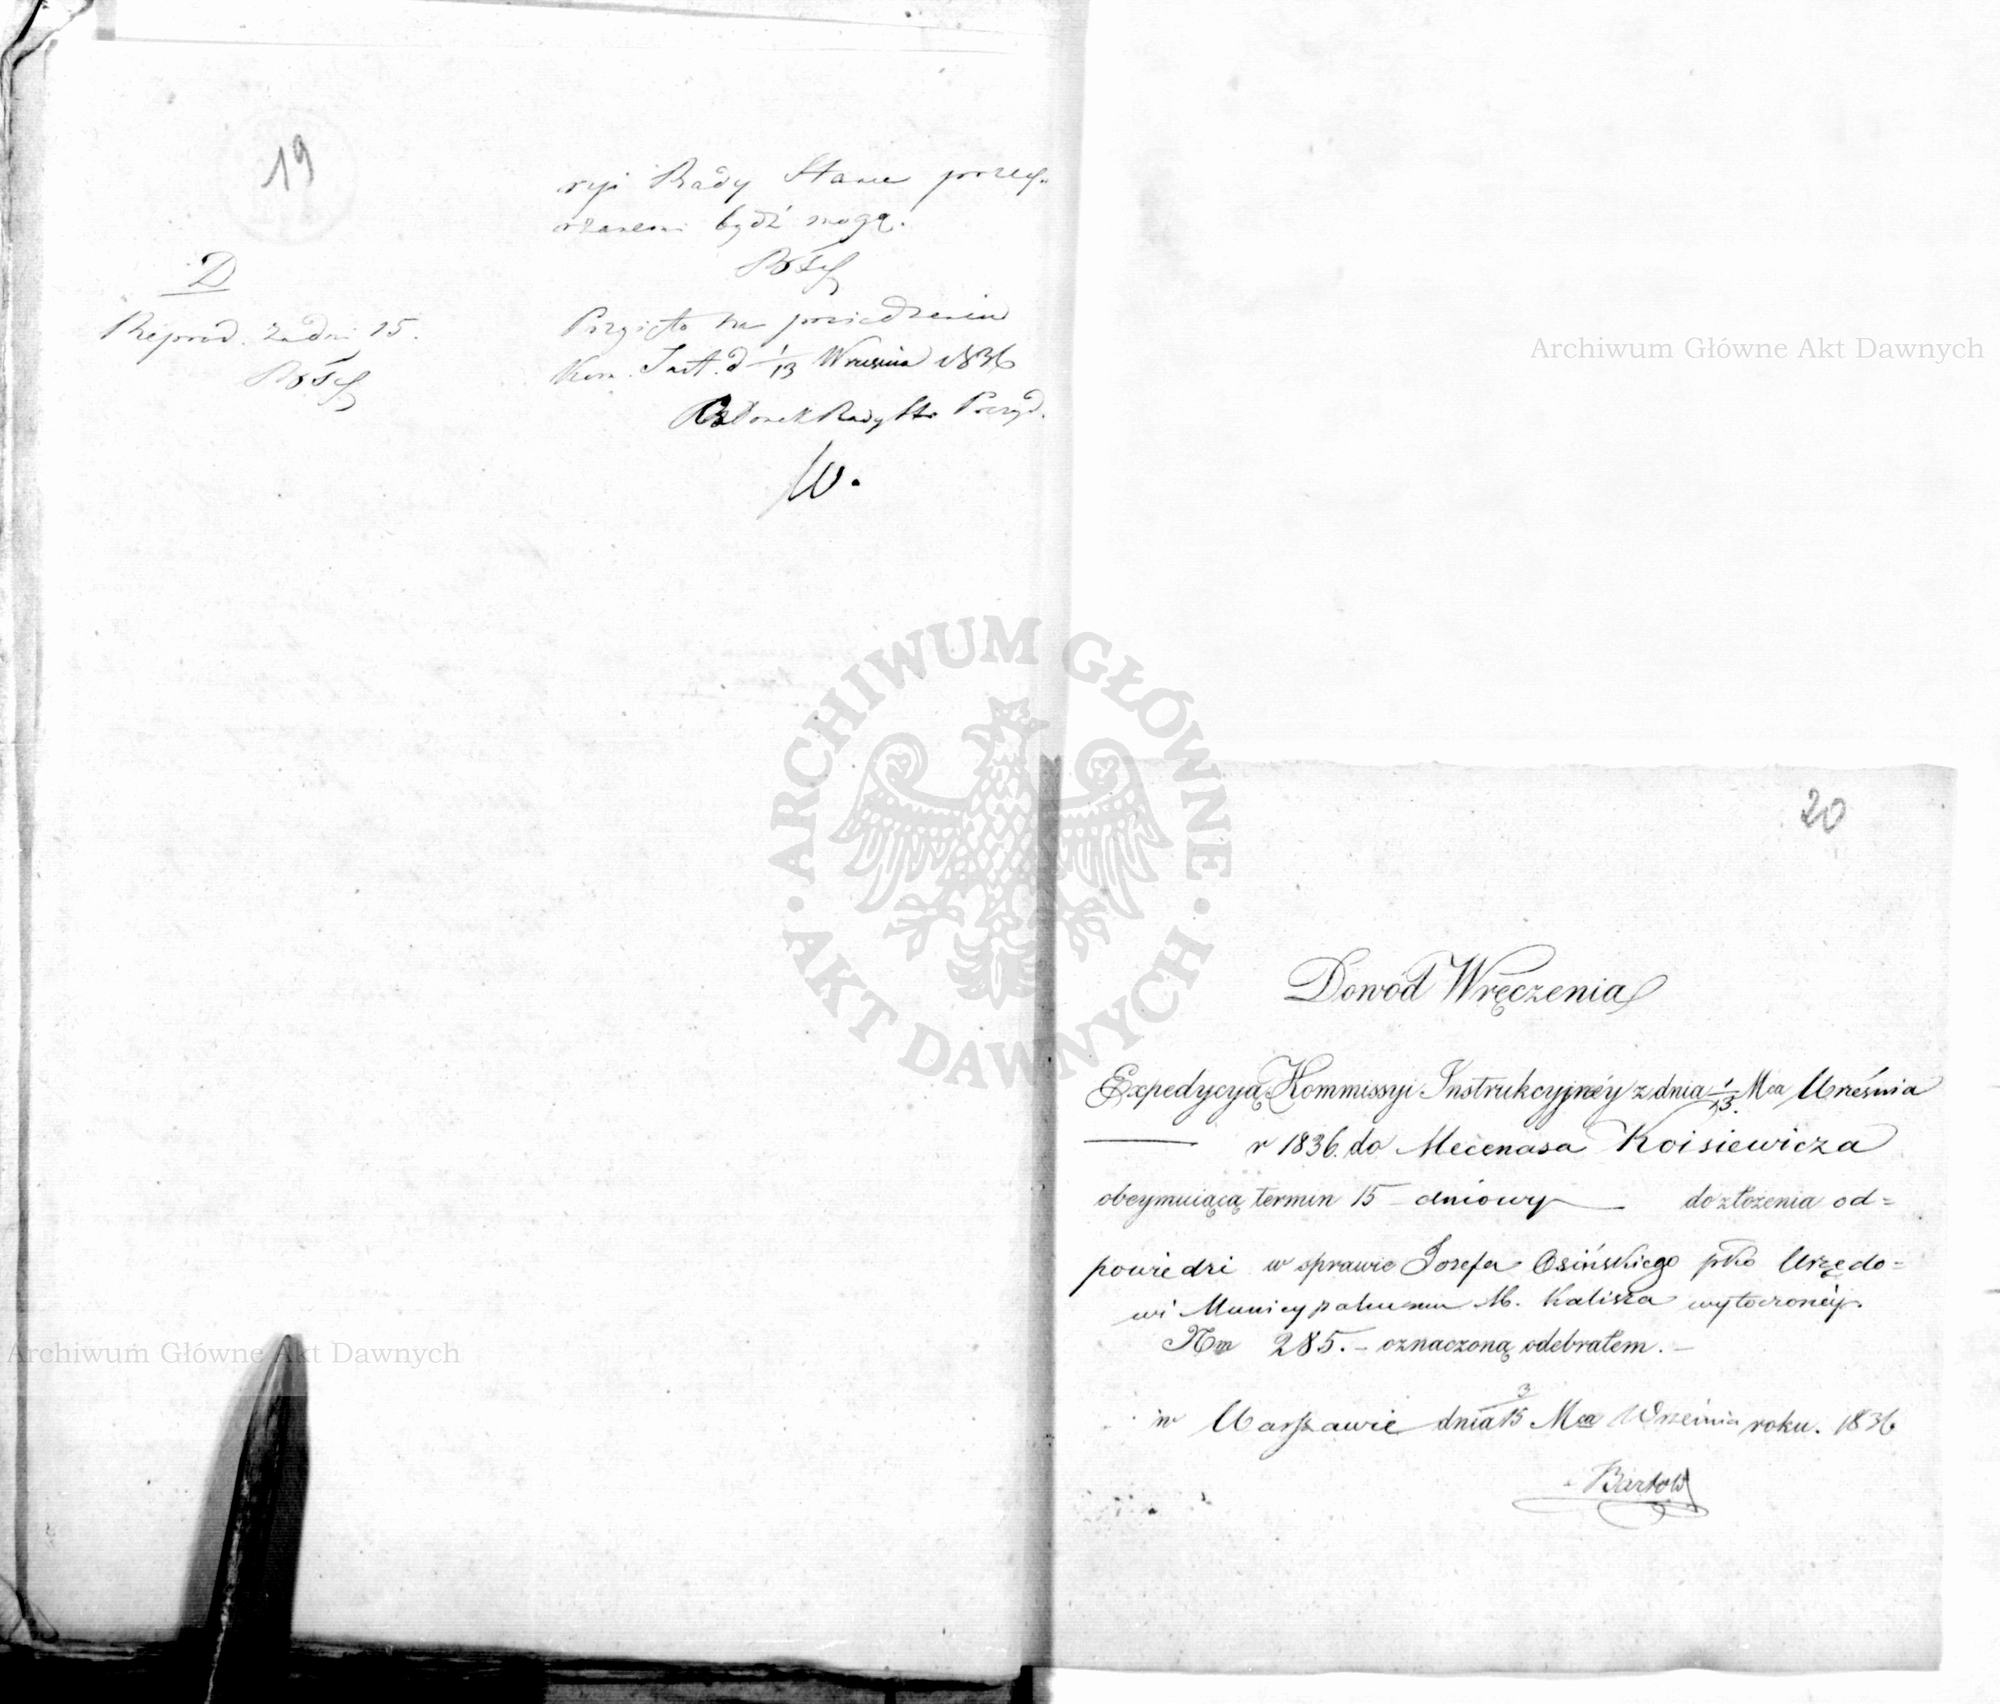 19
ryi Rady Stanu przey-
rzanemi bydź mogą.
D
Reprod. za dni 15.
Przyjęto na posiedzeniu
Kom. Inst. d 1/13 Września 1836
Członek Rady Stu Prezyd.
W.
Archiwum Główne Akt Dawnych
ARCHIWUM GŁÓWNE
AKT DAWNYCH
20
Dowód Wręczenia
Expedycyą Kommissyi Instrukcyjnéy z dnia 1/13. Mca Września
r 1836. do Mecenasa Koisiewicza
obeymuiącą termin 15 - dniowy do złożenia od=
powiedzi w sprawie Josefa Osińskiego pko Urzędo=
wi Municypalnemu M. Kalisza wytoczonéj.
Nm 285. - oznaczoną odebrałem. -
w Warszawie dnia 3/15 Mca Września roku. 1836
Archiwum Główne Akt Dawnych